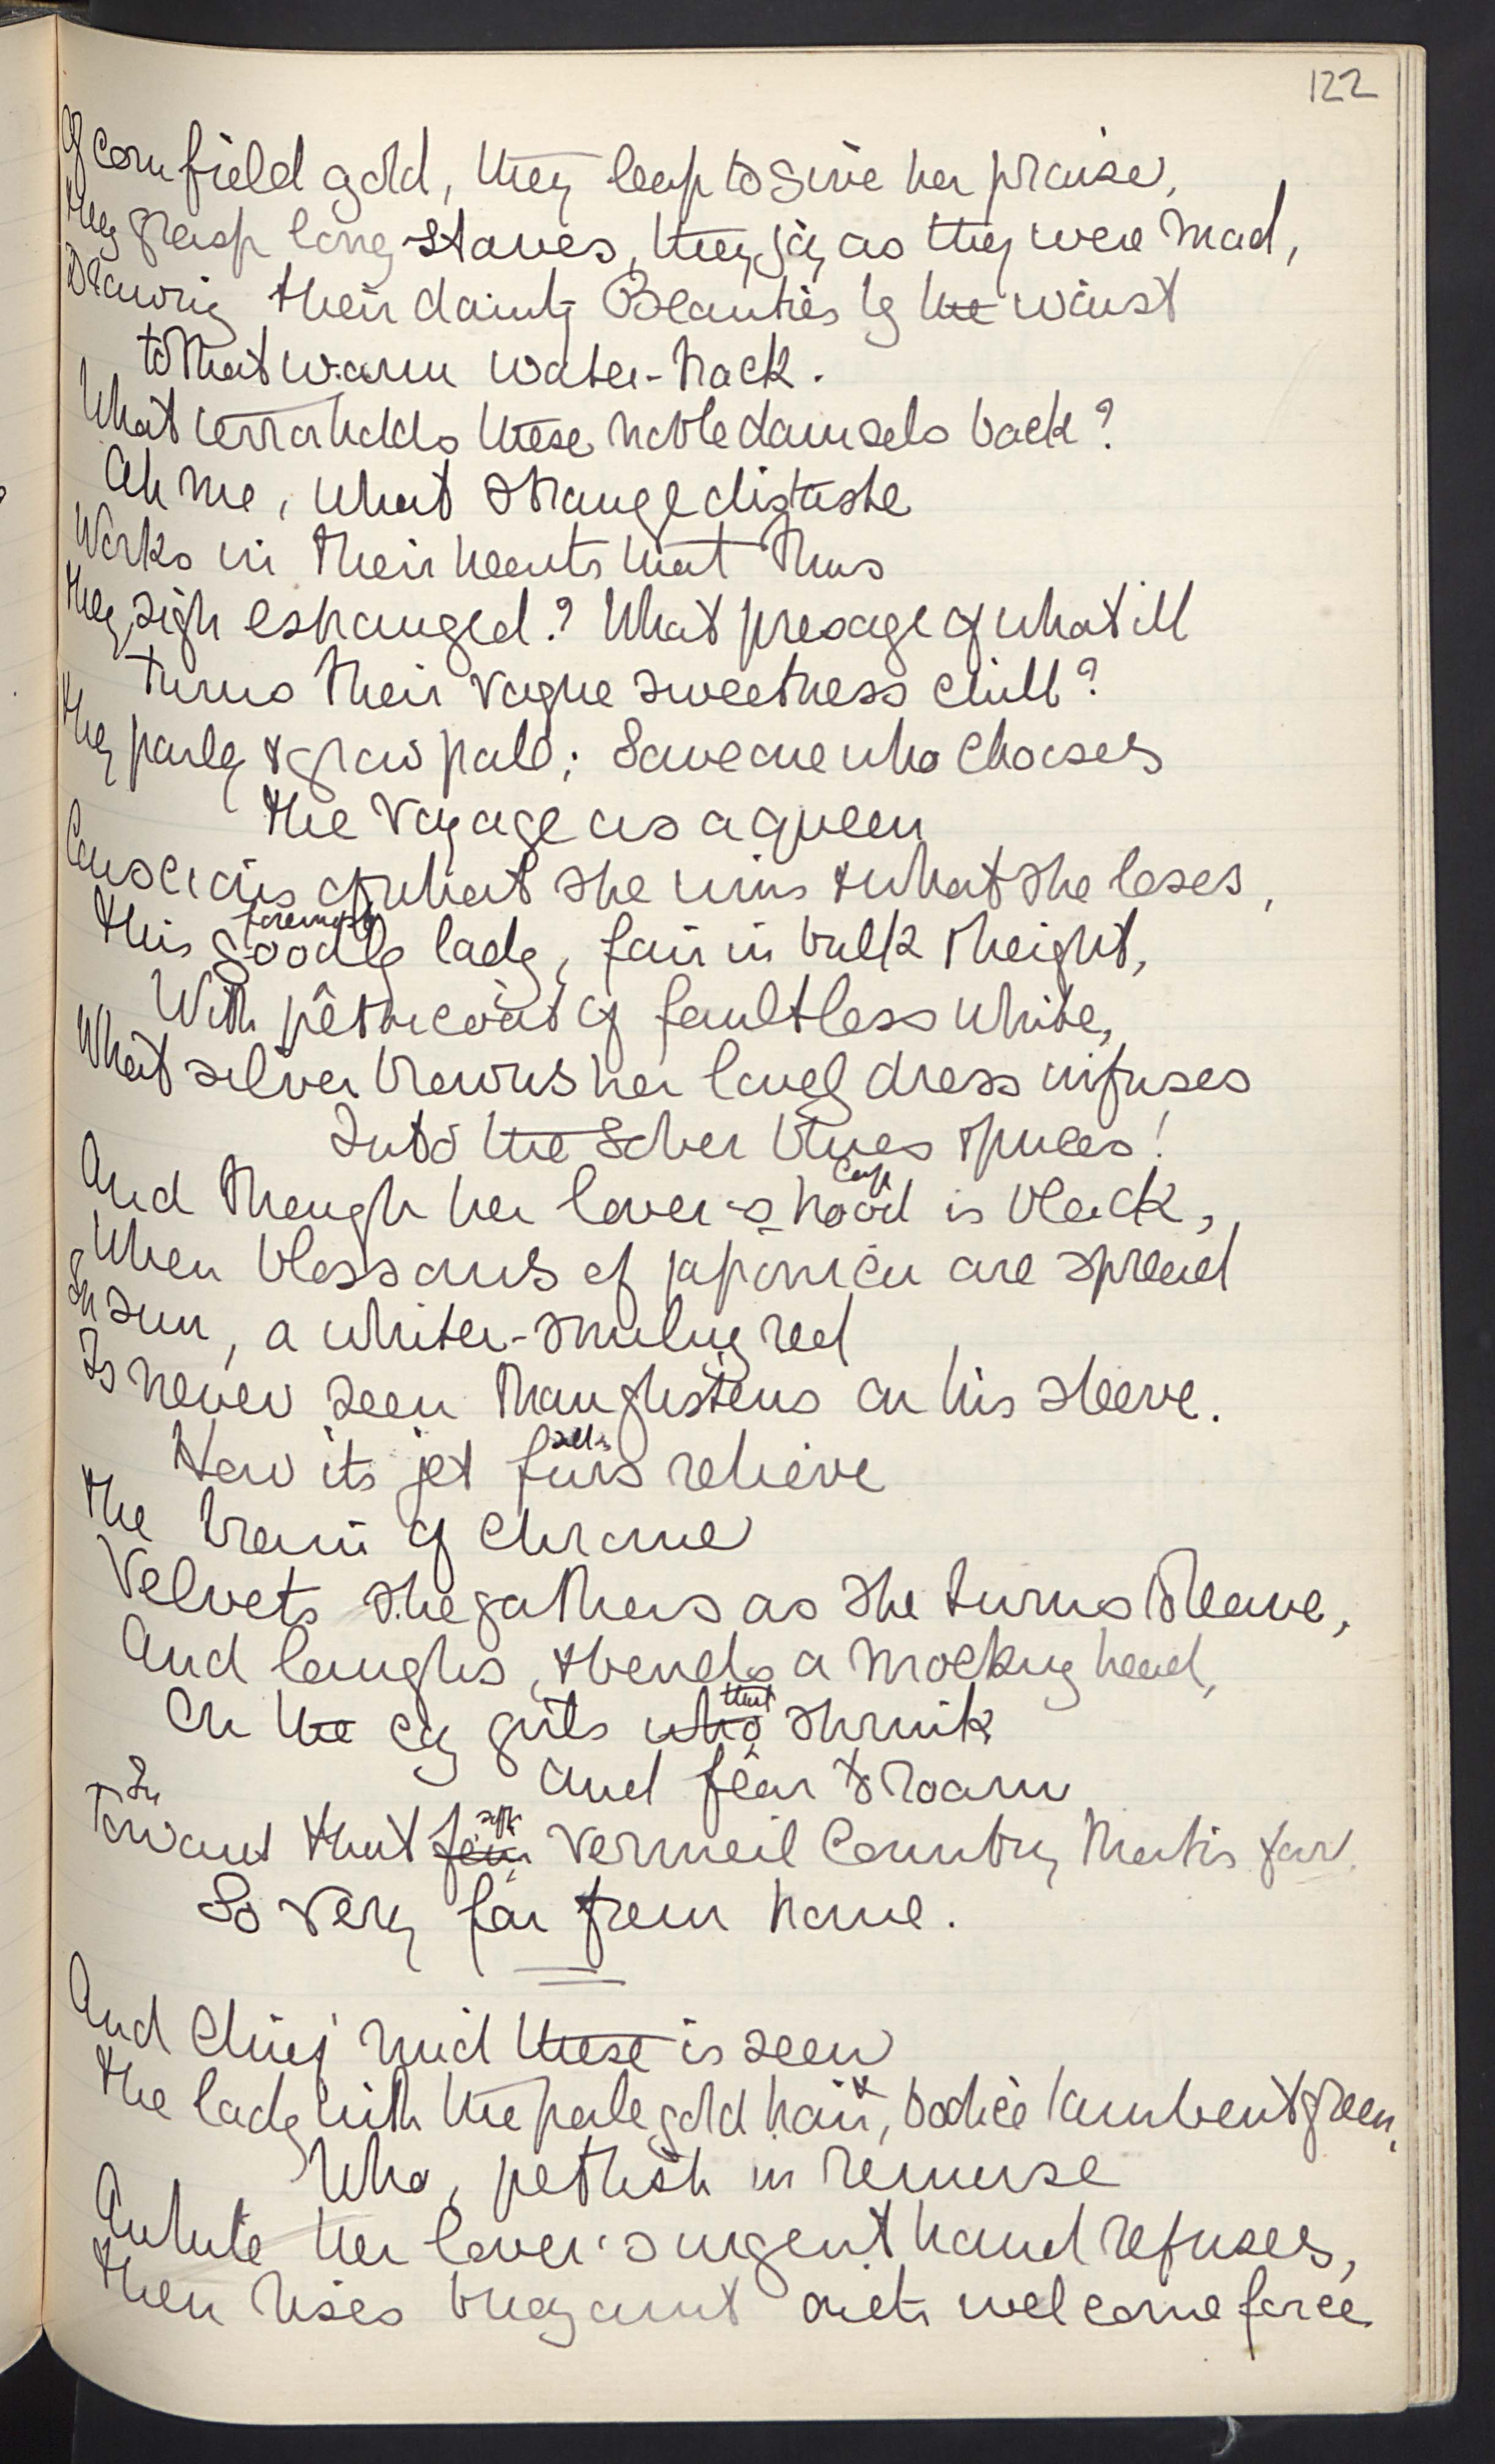 122
Of cornfield gold, they leap to give her praise,
They grasp long staves, they joy as they were mad,
Drawing their dainty Beauties by the waist
To that warm water-track.
What terror holds these noble damsels back?
Ah me, what strange distaste
Works in their hearts that thus
They sigh estranged? What presage of what ill
Turns their vague sweetness chill?
They parley & grow pale; Save one who chooses
The voyage as a queen
Conscious of what she wins & what she loses,
foremost
This goodly lady, fair in bulk & height,
With petticoat of faultless white,
What silver browns her lovely dress infuses
Into the sober blues & puces!
cap
And though her lover's hood is black,
When blossoms of japonica are spread
In sun, a whiter-smiling red
Is never seen than glistens on his sleeve.
silks
How its jet furs relieve
The train of chrome
Velvets she gathers as she turns to leave,
And laughs, & bends a mocking head,
that
On the coy girls who shrink
And fear to roam
In
soft
Toward that fair vermeil Country that is far
So very far from home.
And chief mid these is seen
The lady with the pale gold hair, & bodice lambent green,
Who, pettish in remorse
Awhile her lover's urgent hand refuses,
Then rises buoyant on its welcome force